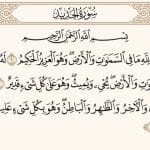 سُورَةُ الحَدِيدِ
بِسْمِ ٱللَّهِ ٱلرَّحْمَٰنِ ٱلرَّحِيمِ
لِلَّهِ مَا فِي ٱلسَّمَٰوَٰتِ وَٱلْأَرْضِ وَهُوَ ٱلْعَزِيزُ ٱلْحَكِيمُ ١ لَهُۥ
وَٱلْأَرْضِ يُحْىِۦ وَيُمِيتُ وَهُوَ عَلَىٰ كُلِّ شَىْءٍ
وَٱلْأَخِرُ وَٱلظَّٰهِرُ وَٱلْبَاطِنُ وَهُوَ بِكُلِّ شَىْءٍ